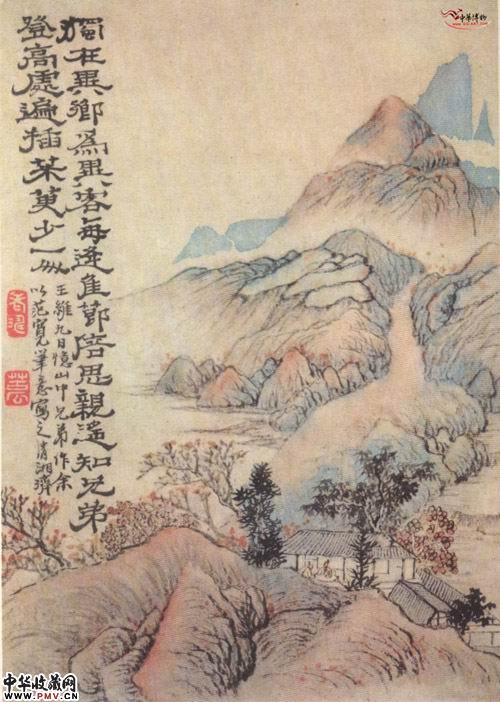 獨在異鄉為異客每逢佳節倍思親遙知兄弟
登高處遍插茱萸少一人
王維九日憶山中兄弟作余
以范寬筆意寫之清湘濟
中华博物
www.gg-art.com
中华收藏网
www.PMV.CN